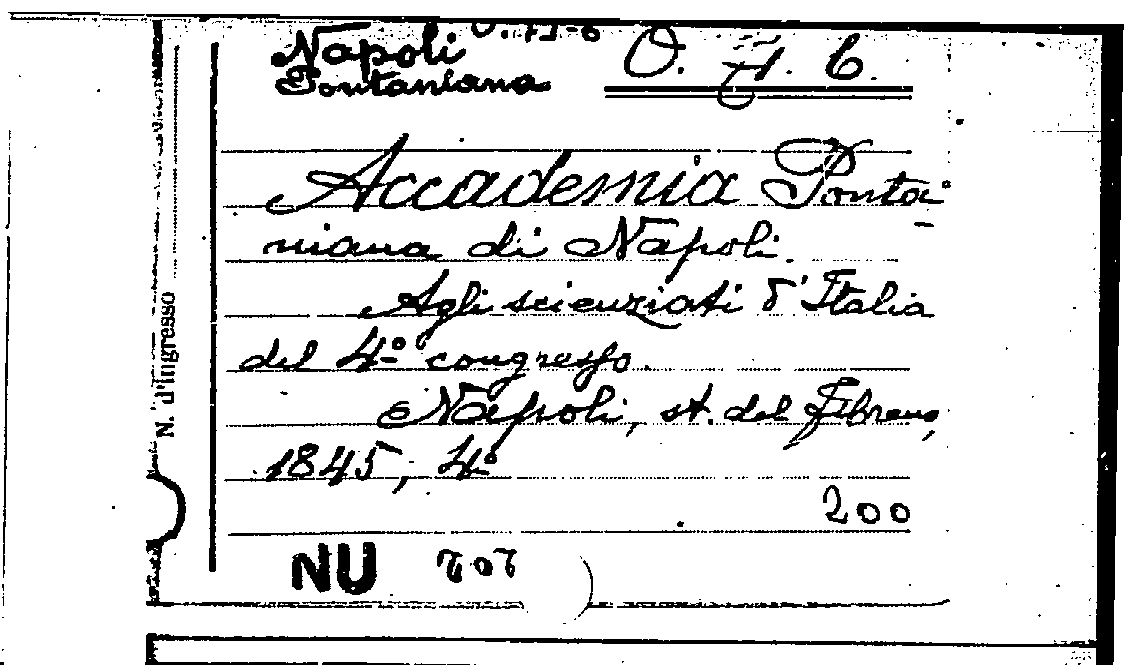 Napoli
Pontaniana
O. 71. 6.
Accademia Ponta-
niana di Napoli.
Agli scienziati d'Italia
del 4º congresso.
Napoli, st. del Fibreno,
1845, 4º
200
NU
N. d'ingresso